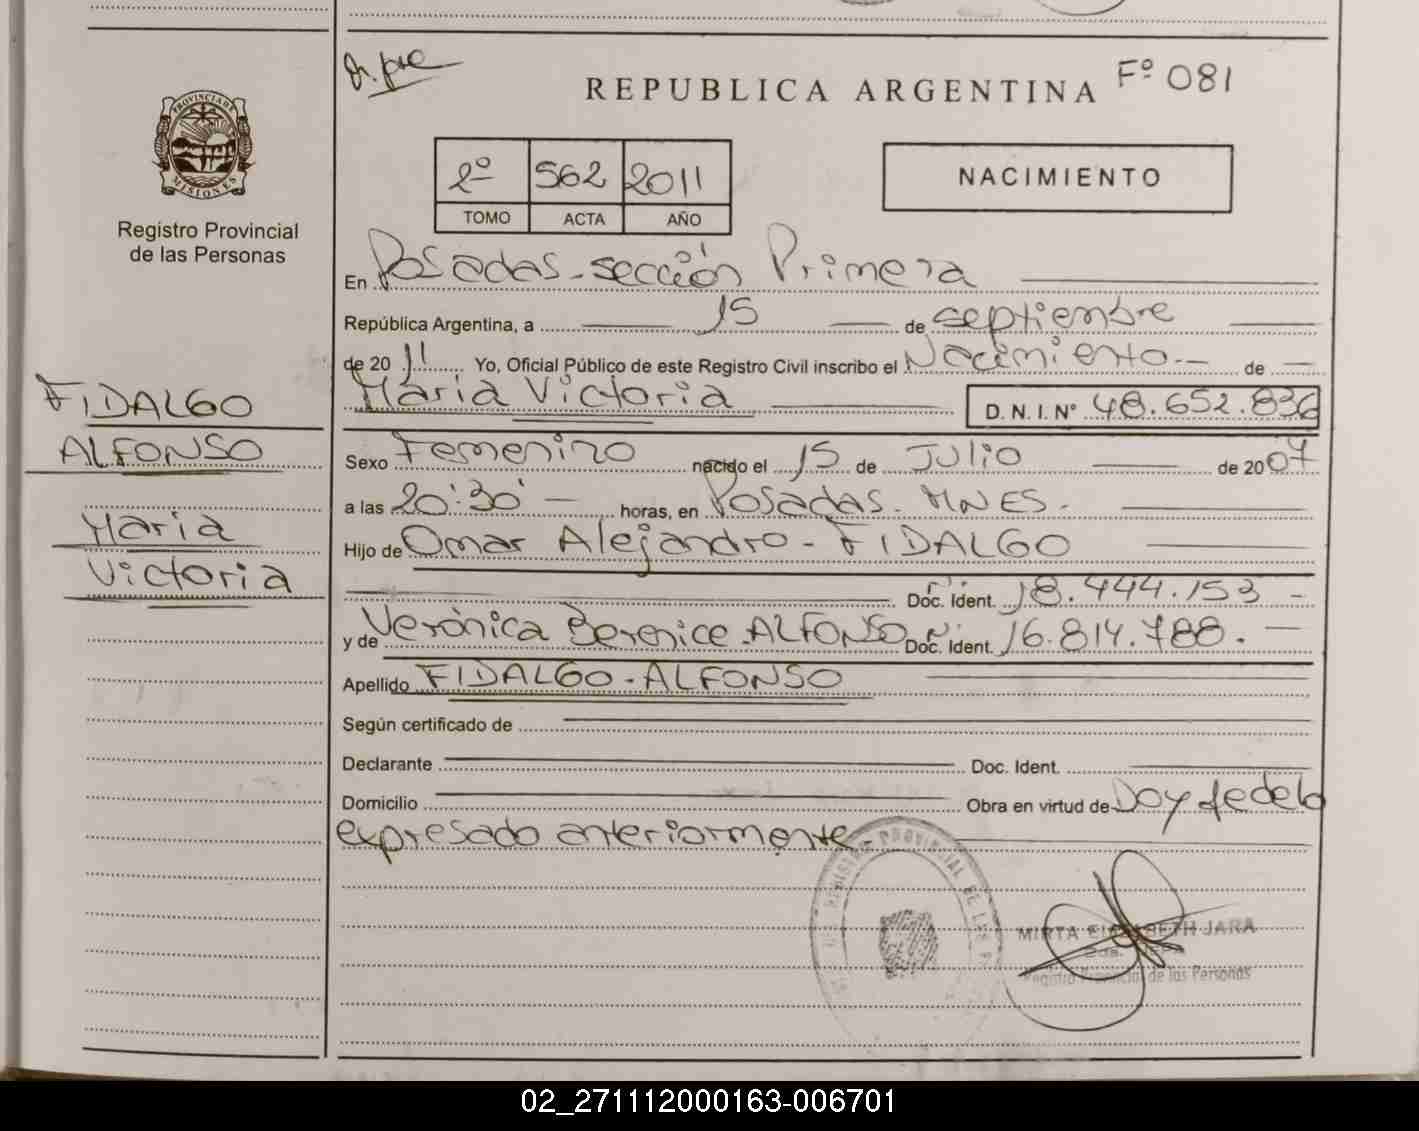 REPUBLICA ARGENTINA
Fº 081
PROVINCIA DE MISIONES
Registro Provincial
de las Personas
2º 562 2011
TOMO ACTA AÑO
NACIMIENTO
En Posadas-sección Primera
República Argentina, a 15 de septiembre
de 2011 Yo, Oficial Público de este Registro Civil inscribo el Nacimiento.- de
Maria Victoria D. N. I. Nº 48.652.836
Sexo Femenino nacido el 15 de Julio de 2007
a las 20:30 horas, en Posadas. MNES.
Hijo de Omar Alejandro - FIDALGO
Doc. Ident. 18.444.153
y de Verónica Berenice ALFONSO Doc. Ident. 16.814.788.
Apellido FIDALGO-ALFONSO
Según certificado de
Declarante Doc. Ident.
Domicilio Obra en virtud de Doy fe de lo
expresado anteriormente
FIDALGO
ALFONSO
Maria
Victoria
REGISTRO PROVINCIAL DE LAS
MIRTA ELIZABETH JARA
Registro Provincial de las Personas
02_271112000163-006701